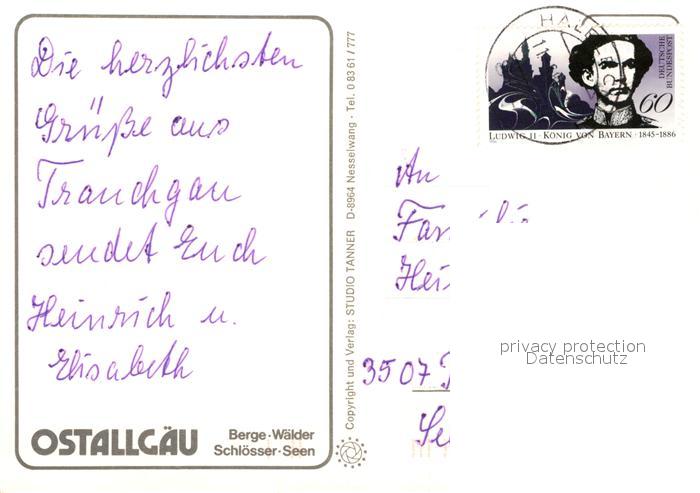 Die herzlichsten
Grüße aus
Trauchgau
sendet Euch
Heinrich u.
Elisabeth
OSTALLGÄU
Berge · Wälder
Schlösser · Seen
Copyright und Verlag: STUDIO TANNER D-8964 Nesselwang · Tel. 0 83 61 / 777
DEUTSCHE
BUNDESPOST
60
LUDWIG II · KÖNIG VON BAYERN · 1845-1886
An
3507
privacy protection
Datenschutz